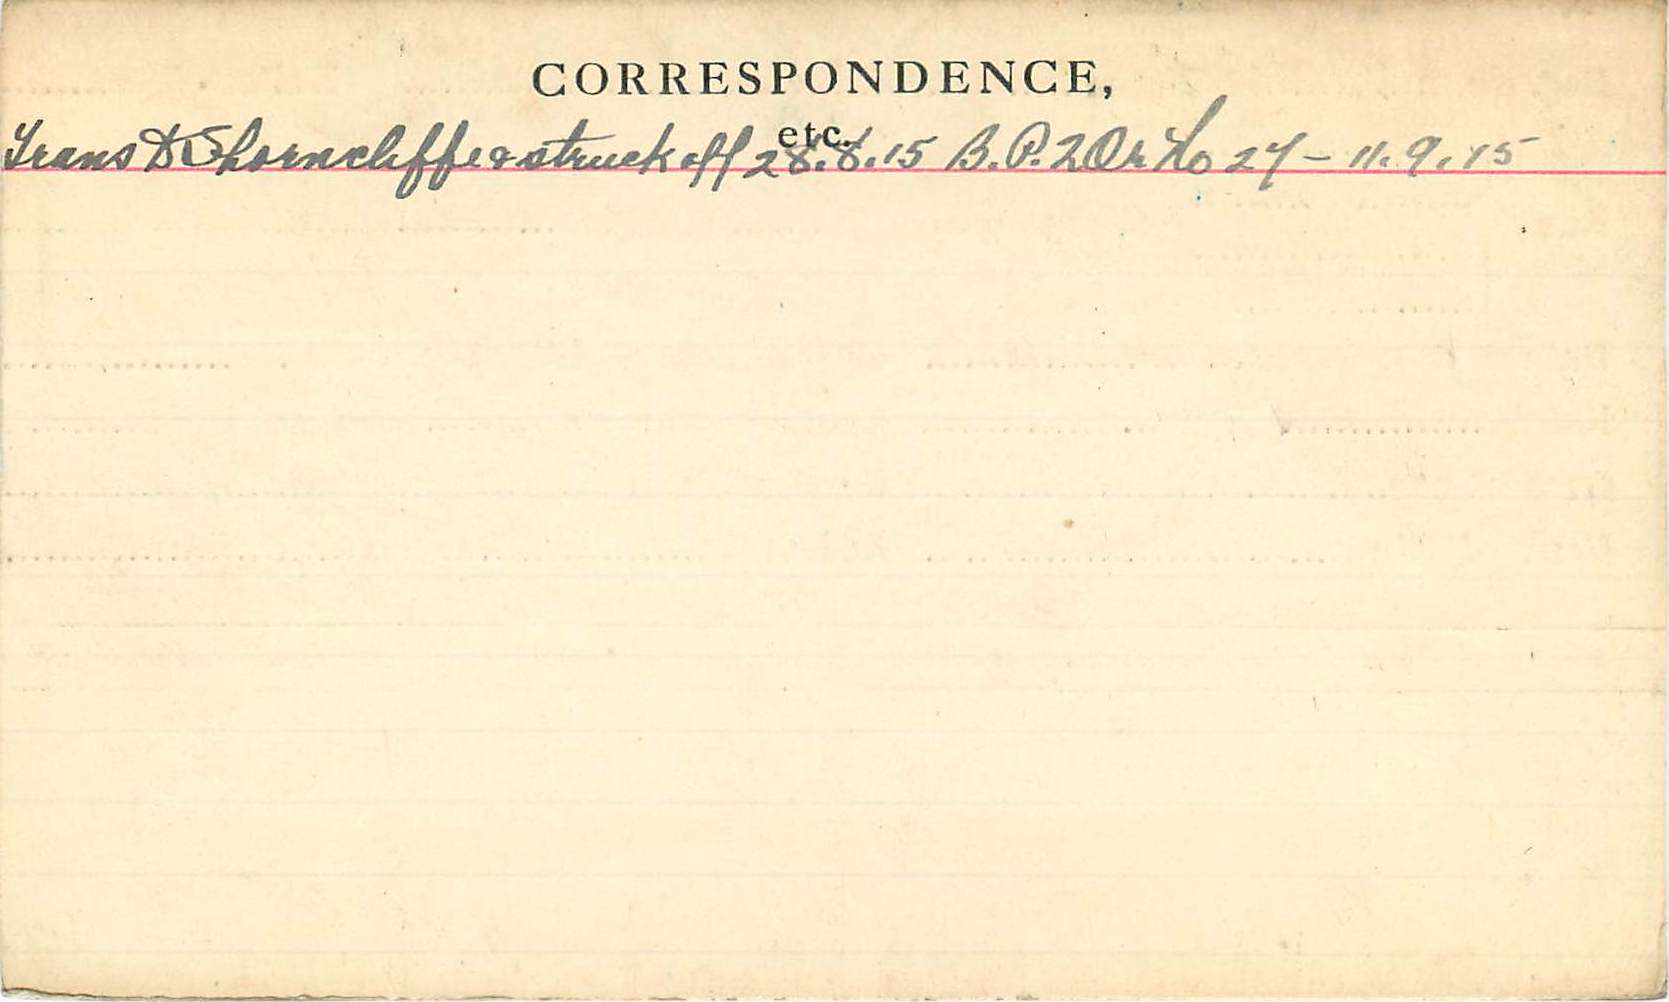 CORRESPONDENCE,
etc.
Trans to Shorncliffe & struck off 28.8.15 B.P. 2 Or No 27 – 11.9.15